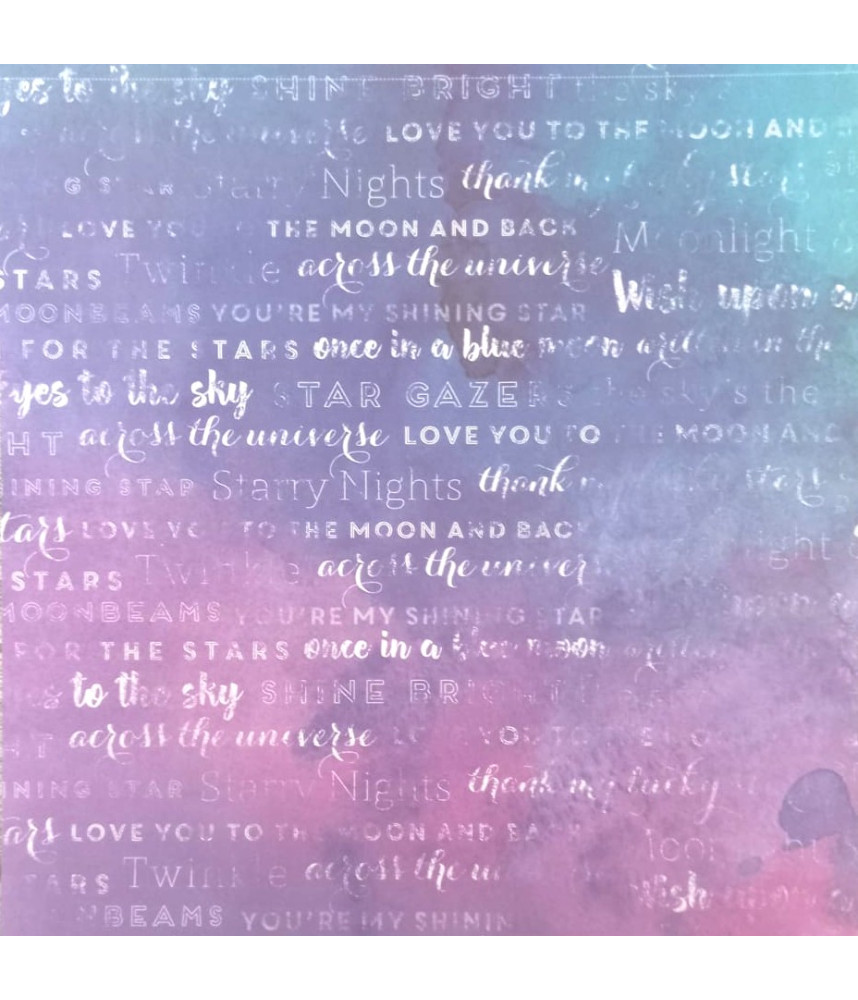 yes to the sky SHINE BRIGHT the sky
across the universe LOVE YOU TO THE MOON AND
G STAR Starry Nights thank my lucky stars
LOVE YOU TO THE MOON AND BACK Moonlight &
STARS Twinkle across the universe Wish upon a
MOONBEAMS YOU'RE MY SHINING STAR
FOR THE STARS once in a blue moon written in the
eyes to the sky STAR GAZERS the sky's the
HT across the universe LOVE YOU TO THE MOON AND
INING STAR Starry Nights thank my lucky stars
stars LOVE YOU TO THE MOON AND BACK
STARS Twinkle across the univer
MOONBEAMS YOU'RE MY SHINING STAR upon
FOR THE STARS once in a blue moon
to the sky SHINE BRIGHT
across the universe LOVE YOU TO
INING STAR Starry Nights thank my lucky
ars LOVE YOU TO THE MOON AND BACK
STARS Twinkle across the un Wish upon a
NBEAMS YOU'RE MY SHININ